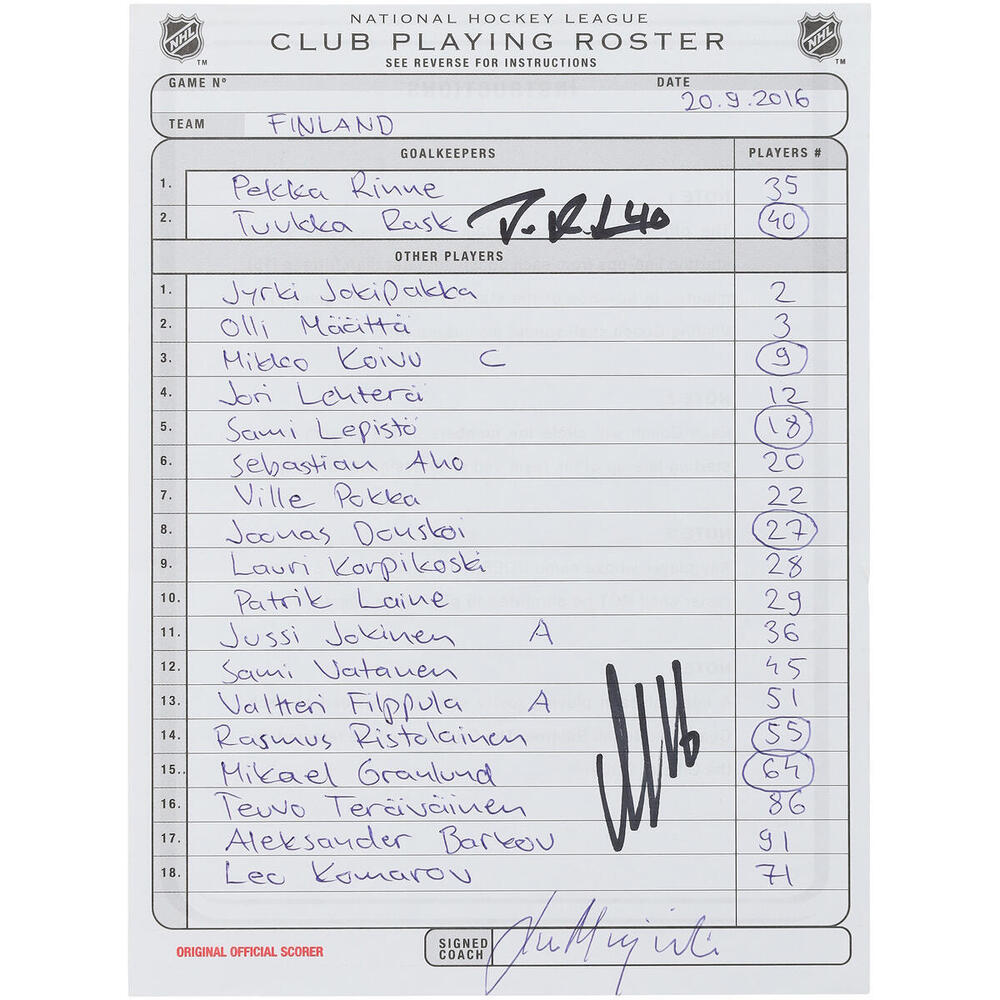 NATIONAL HOCKEY LEAGUE
CLUB PLAYING ROSTER
SEE REVERSE FOR INSTRUCTIONS
NHL TM NHL TM
GAME Nº DATE 20.9.2016
TEAM FINLAND
GOALKEEPERS PLAYERS #
1. Pekka Rinne 35
2. Tuukka Rask T.R. 40 40
OTHER PLAYERS
1. Jyrki Jokipakka 2
2. Olli Määttä 3
3. Mikko Koivu C 9
4. Jori Lehterä 12
5. Sami Lepistö 18
6. Sebastian Aho 20
7. Ville Pokka 22
8. Joonas Donskoi 27
9. Lauri Korpikoski 28
10. Patrik Laine 29
11. Jussi Jokinen A 36
12. Sami Vatanen 45
13. Valtteri Filppula A 51
14. Rasmus Ristolainen 55
15. Mikael Granlund 64
16. Teuvo Teräväinen 86
17. Aleksander Barkov 91
18. Leo Komarov 71
ORIGINAL OFFICIAL SCORER
SIGNED
COACH